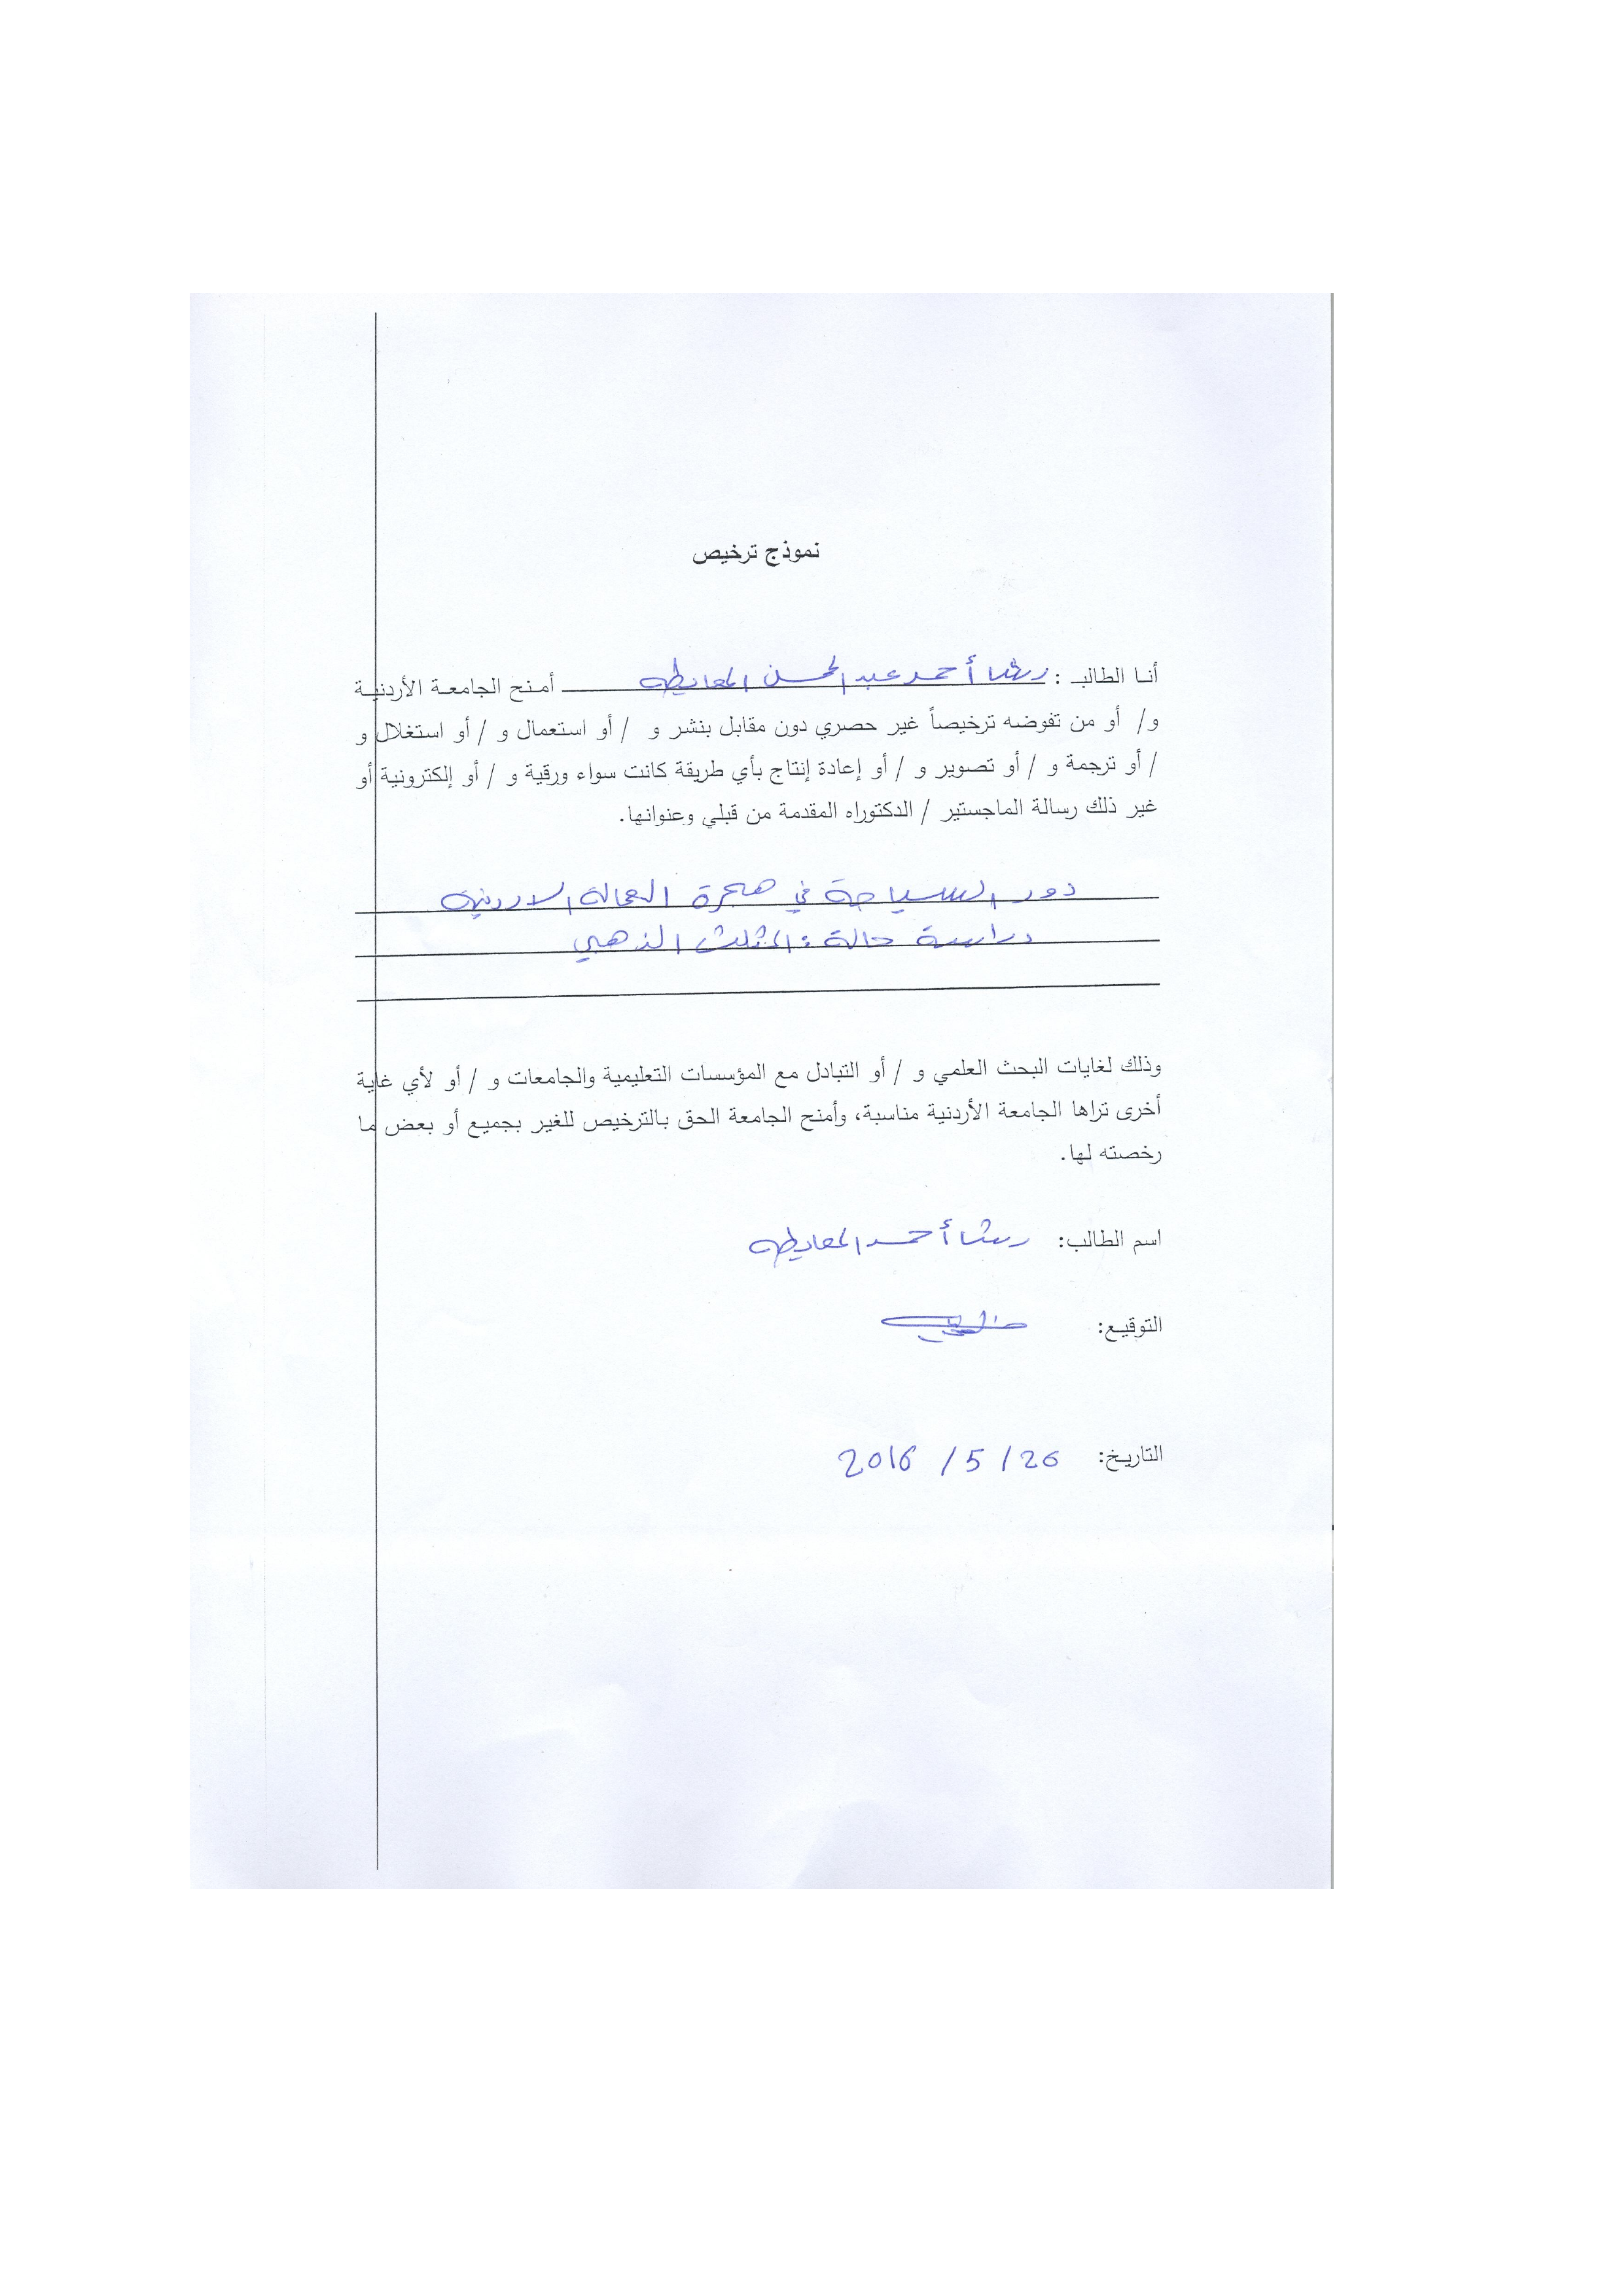 نموذج ترخيص
أنا الطالب : رشا أحمد عبدالمحسن المعايطه أمنح الجامعة الأردنية
و/ أو من تفوضه ترخيصاً غير حصري دون مقابل بنشر و / أو استعمال و / أو استغلال و
/ أو ترجمة و / أو تصوير و / أو إعادة إنتاج بأي طريقة كانت سواء ورقية و / أو إلكترونية أو
غير ذلك رسالة الماجستير / الدكتوراه المقدمة من قبلي وعنوانها.
دور السياحة في هجرة العمالة الاردنية
دراسة حالة : المثلث الذهبي
وذلك لغايات البحث العلمي و / أو التبادل مع المؤسسات التعليمية والجامعات و / أو لأي غاية
أخرى تراها الجامعة الأردنية مناسبة، وأمنح الجامعة الحق بالترخيص للغير بجميع أو بعض ما
رخصته لها.
اسم الطالب: رشا أحمد المعايطه
التوقيع:
التاريخ: 26 / 5 / 2016